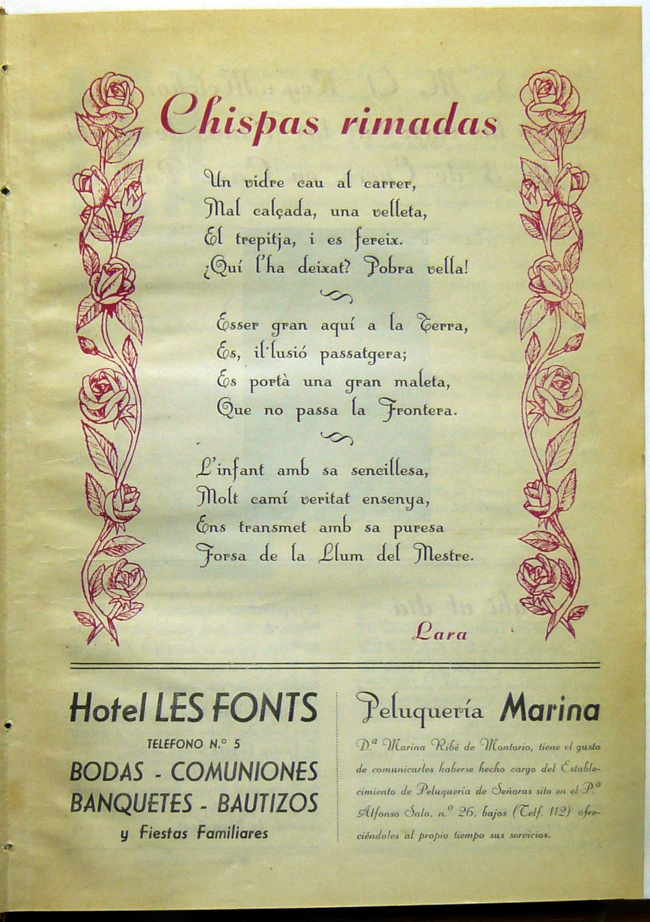 Chispas rimadas
Un vidre cau al carrer,
Mal calçada, una velleta,
El trepitja, i es fereix.
¿Quí l'ha deixat? Pobra vella!
Esser gran aquí a la Terra,
Es, il·lusió passatgera;
Es portà una gran maleta,
Que no passa la Frontera.
L'infant amb sa sencillesa,
Molt camí veritat ensenya,
Ens transmet amb sa puresa
Forsa de la Llum del Mestre.
Lara
Hotel LES FONTS
TELEFONO N.º 5
BODAS - COMUNIONES
BANQUETES - BAUTIZOS
y Fiestas Familiares
Peluquería Marina
D.ª Marina Ribé de Montorio, tiene el gusto
de comunicarles haberse hecho cargo del Estable-
cimiento de Peluquería de Señoras sito en el P.º
Alfonso Sala, n.º 26, bajos (Telf. 112) ofre-
ciéndoles al propio tiempo sus servicios.